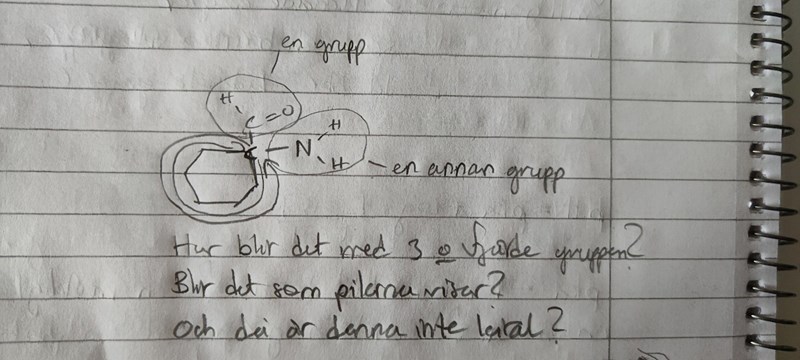 en grupp
H
C=O
C-N
H
H
en annan grupp
Hur blir det med 3 o fjärde gruppen?
Blir det som pilarna visar?
Och då är denna inte kiral?